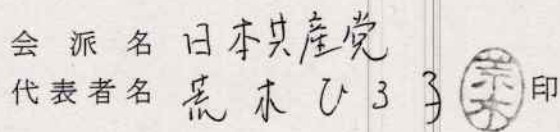 会派名 日本共産党
代表者名 荒木ひろ子 荒木 印